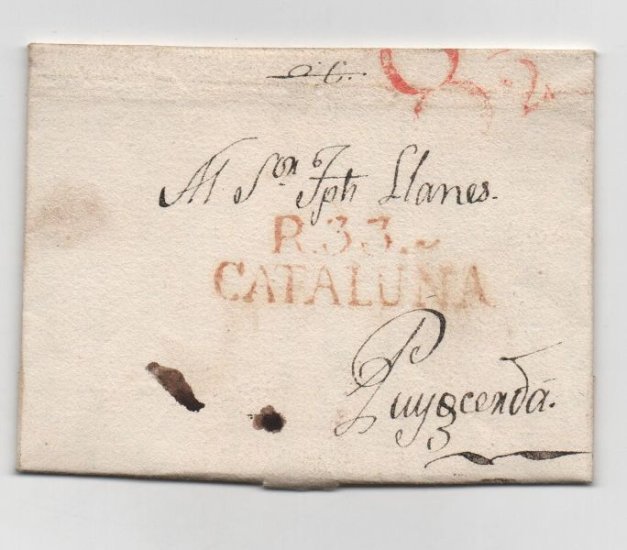 Al S.ᵒʳ Jph Llanes.
R.33.
CATALUÑA
Puygcerdá.